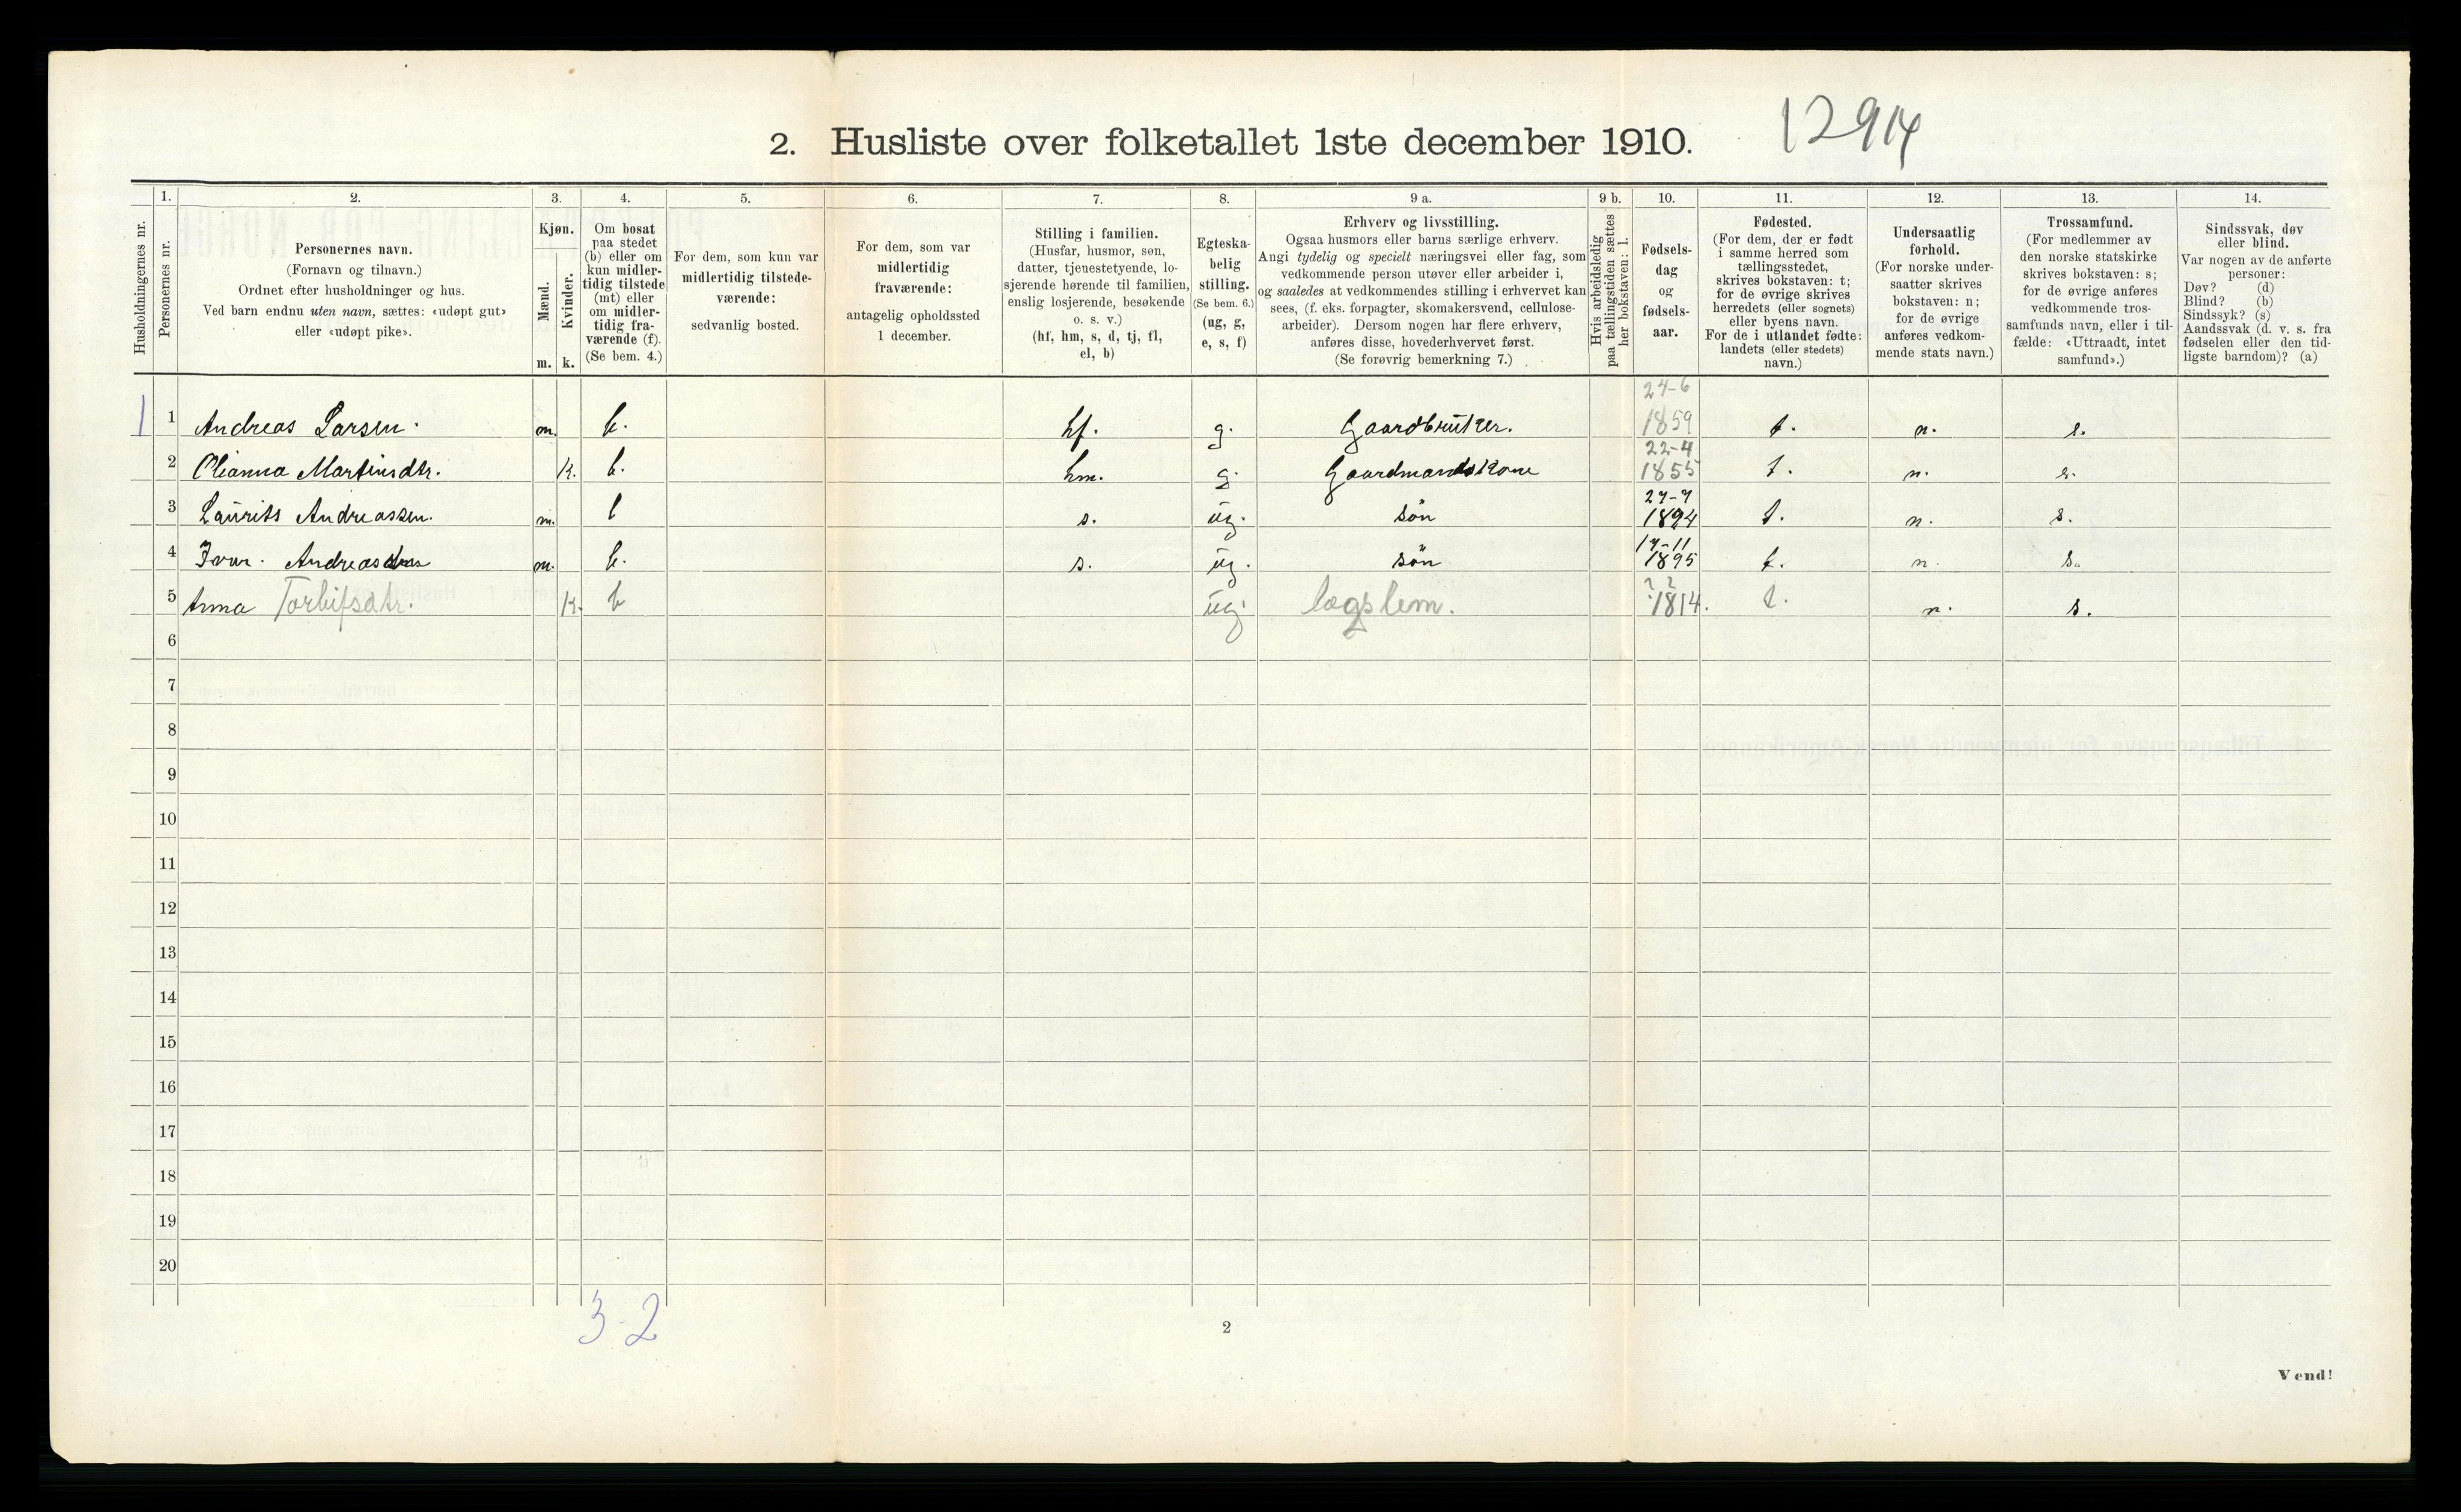 2. Husliste over folketallet 1ste december 1910.
1.
2.
3.
4.
5.
6.
7.
8.
9 a.
9 b.
10.
11.
12.
13.
14.
Husholdningernes nr.
Personernes nr.
Personernes navn.
(Fornavn og tilnavn.)
Ordnet efter husholdninger og hus.
Ved barn endnu uten navn, sættes: «udøpt gut»
eller «udøpt pike».
Kjøn.
Mænd.
Kvinder.
m. k.
Om bosat
paa stedet
(b) eller om
kun midler-
tidig tilstede
(mt) eller
om midler-
tidig fra-
værende (f).
(Se bem. 4.)
For dem, som kun var
midlertidig tilstede-
værende:
sedvanlig bosted.
For dem, som var
midlertidig
fraværende:
antagelig opholdssted
1 december.
Stilling i familien.
(Husfar, husmor, søn,
datter, tjenestetyende, lo-
sjerende hørende til familien,
enslig losjerende, besøkende
o. s. v.)
(hf, hm, s, d, tj, fl,
el, b)
Egteska-
belig
stilling.
(Se bem. 6.)
(ug, g,
e, s, f)
Erhverv og livsstilling.
Ogsaa husmors eller barns særlige erhverv.
Angi tydelig og specielt næringsvei eller fag, som
vedkommende person utøver eller arbeider i,
og saaledes at vedkommendes stilling i erhvervet kan
sees, (f. eks. forpagter, skomakersvend, cellulose-
arbeider). Dersom nogen har flere erhverv,
anføres disse, hovederhvervet først.
(Se forøvrig bemerkning 7.)
Hvis arbeidsledig
paa tællingstiden sættes
her bokstaven: l.
Fødsels-
dag
og
fødsels-
aar.
Fødested.
(For dem, der er født
i samme herred som
tællingsstedet,
skrives bokstaven: t;
for de øvrige skrives
herredets (eller sognets)
eller byens navn.
For de i utlandet fødte:
landets (eller stedets)
navn.)
Undersaatlig
forhold.
(For norske under-
saatter skrives
bokstaven: n;
for de øvrige
anføres vedkom-
mende stats navn.)
Trossamfund.
(For medlemmer av
den norske statskirke
skrives bokstaven: s;
for de øvrige anføres
vedkommende tros-
samfunds navn, eller i til-
fælde: «Uttraadt, intet
samfund».)
Sindssvak, døv
eller blind.
Var nogen av de anførte
personer:
Døv? (d)
Blind? (b)
Sindssyk? (s)
Aandssvak (d. v. s. fra
fødselen eller den tid-
ligste barndom)? (a)
1 1 Andreas Larsen. m. b. hf. g. Gaardbruker. 24-6 1859 t. n. s.
2 Olianna Martinsdtr. k. b. hm. g. Gaardmandskone 22-4 1855 t. n. s.
3 Laurits Andreassen. m. b s. ug. søn 1894 t. n. s.
4 m. b. s. ug. søn 1895 t. n. s.
5 Anna k. b ug. lægslem. ? ? 1814. t. n. s.
6
7
8
9
10
11
12
13
14
15
16
17
18
19
20
3-2
2
Vend!